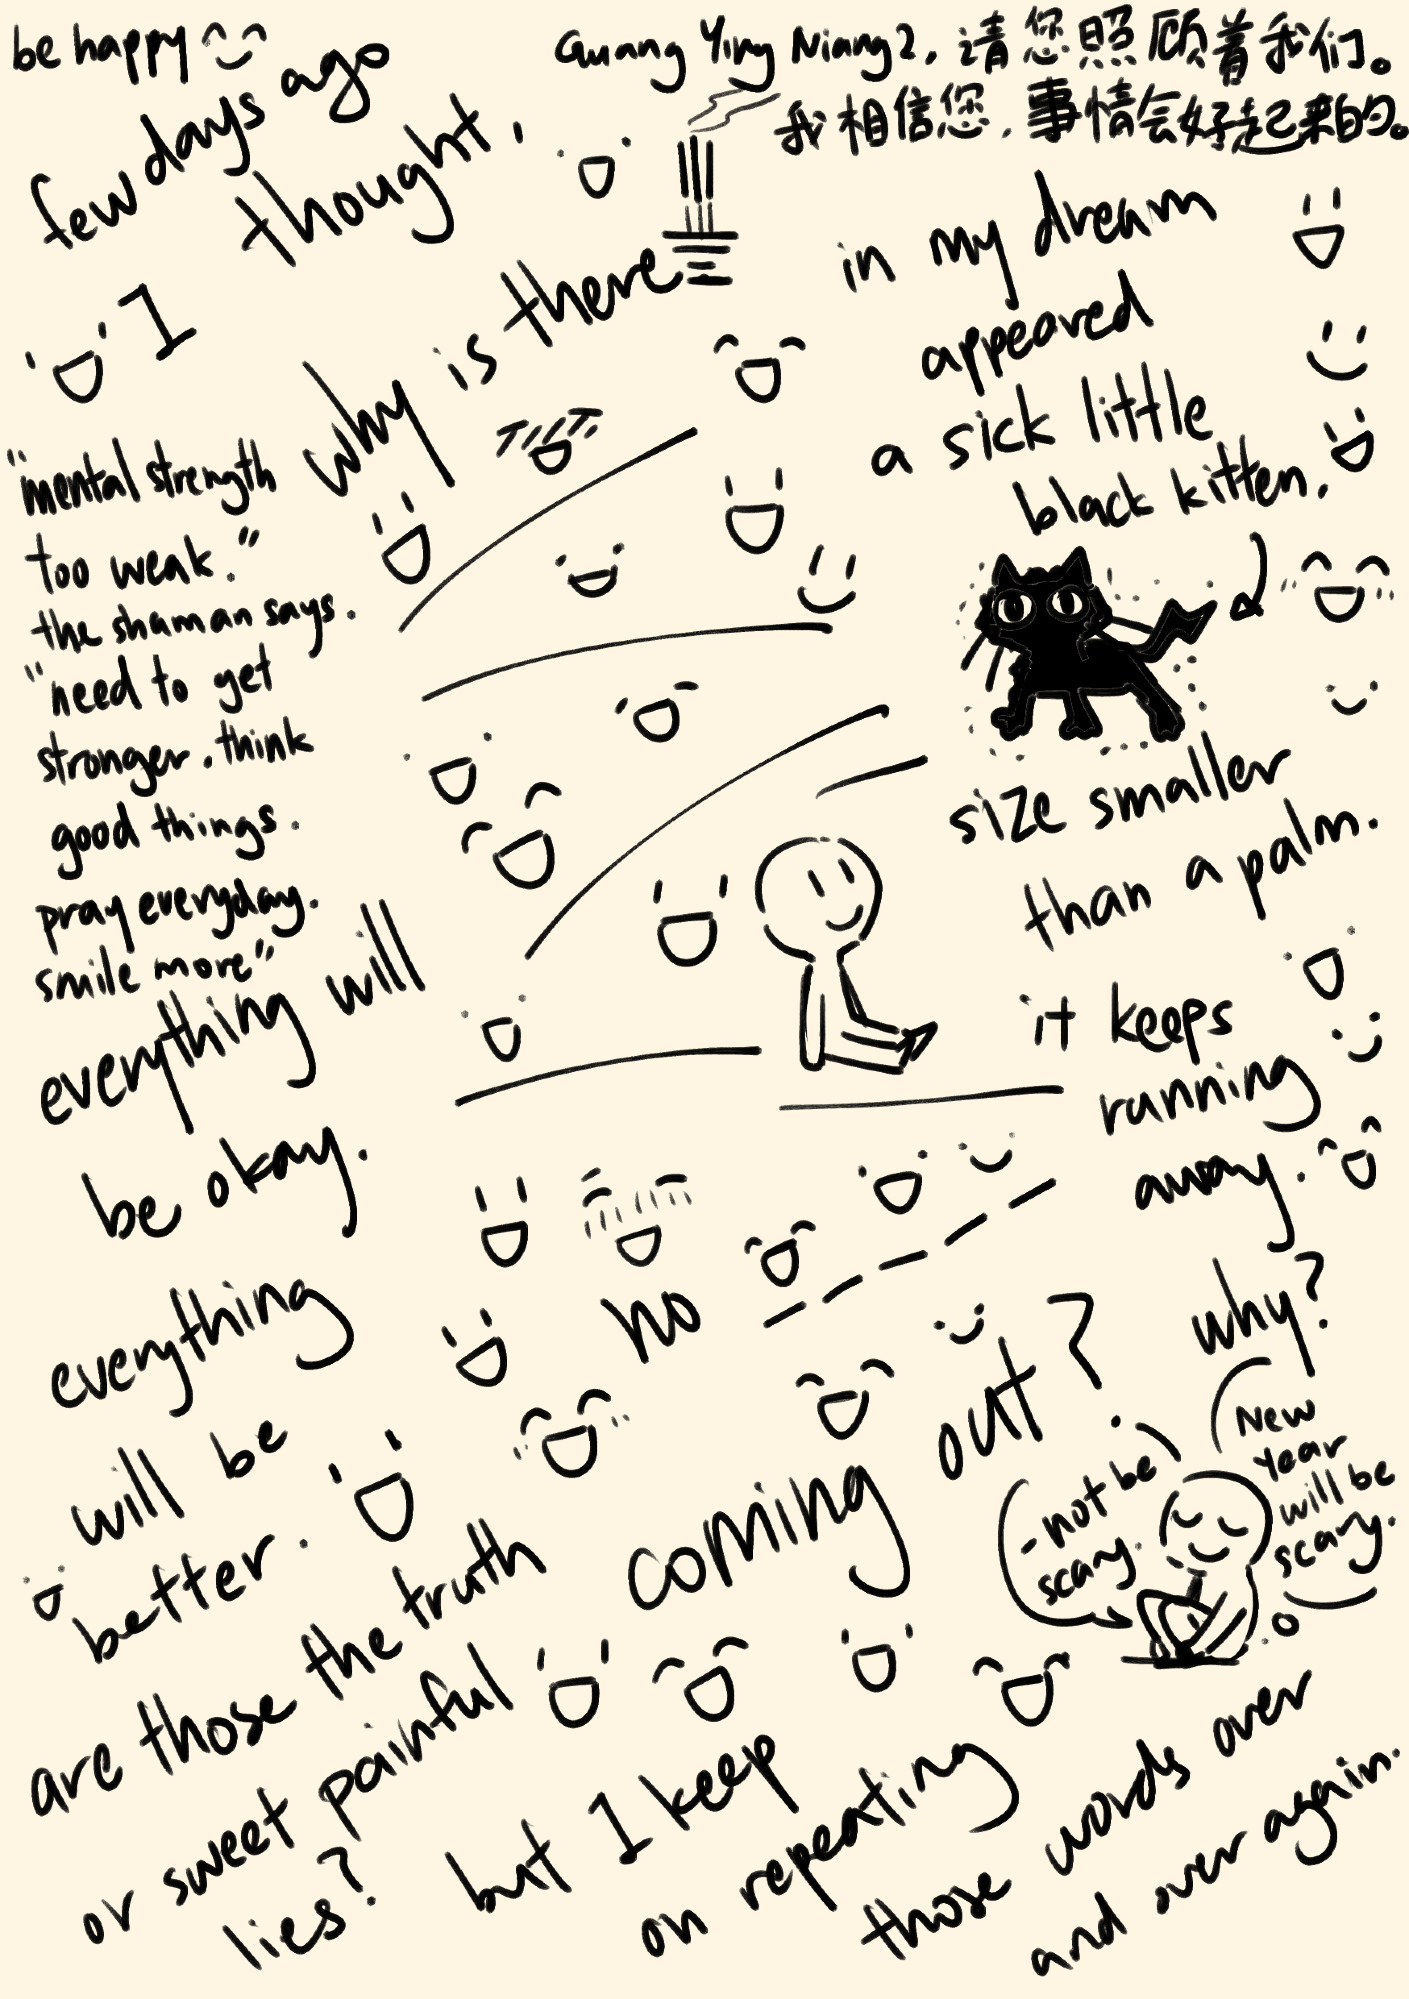 be happy
Guang Ying Niang2, 请您照顾着我们。
我相信您，事情会好起来的。
few days ago
I thought,
why is there
no _ _ _ _ _
coming out?
"mental strength
too weak."
the shaman says.
"need to get
stronger. think
good things.
pray everyday.
smile more"
everything will
be okay.
everything
will be
better.
are those the truth
or sweet painful
lies?
in my dream
appeared
a sick little
black kitten.
size smaller
than a palm.
it keeps
running
away.
why?
New
Year
will be
scary.
-not be
scary.
but I keep
on repeating
those words over
and over again.